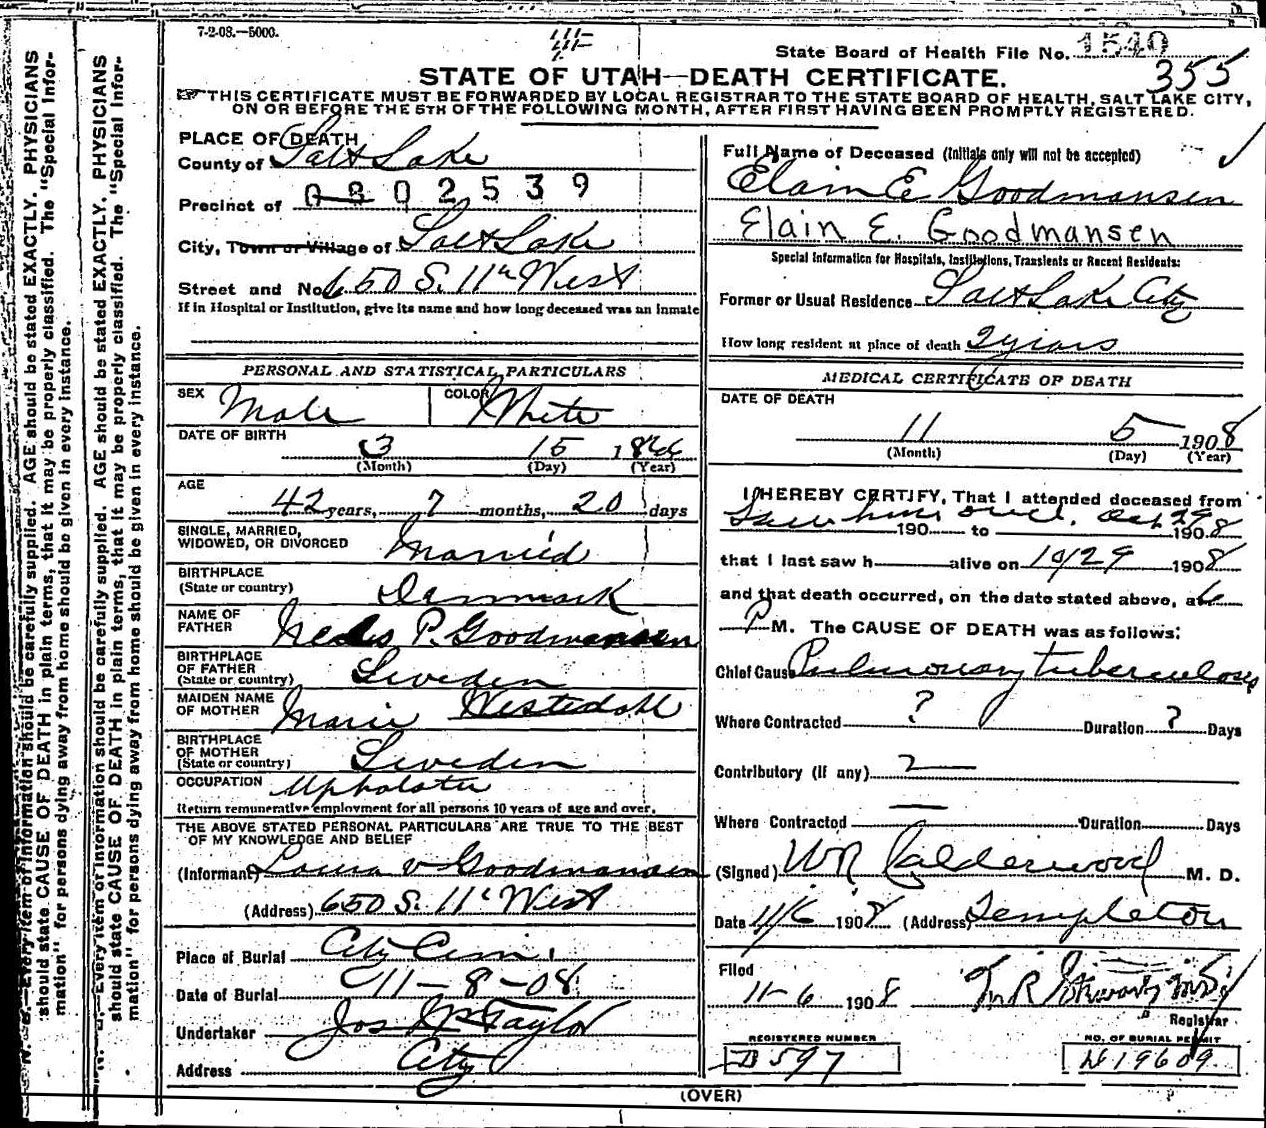 7-2-08.—5000.
State Board of Health File No. 1540
355
STATE OF UTAH—DEATH CERTIFICATE.
THIS CERTIFICATE MUST BE FORWARDED BY LOCAL REGISTRAR TO THE STATE BOARD OF HEALTH, SALT LAKE CITY,
ON OR BEFORE THE 5TH OF THE FOLLOWING MONTH, AFTER FIRST HAVING BEEN PROMPTLY REGISTERED.
PLACE OF DEATH
County of Salt Lake
Precinct of 0802539
City, Town or Village of Salt Lake
Street and No. 650 S. 11th West
If in Hospital or Institution, give its name and how long deceased was an inmate
PERSONAL AND STATISTICAL PARTICULARS
SEX Male COLOR White
DATE OF BIRTH 3 15 1866
(Month) (Day) (Year)
AGE
42 years, 7 months, 20 days
SINGLE, MARRIED,
WIDOWED, OR DIVORCED Married
BIRTHPLACE
(State or country) Denmark
NAME OF
FATHER P. Goodmansen
BIRTHPLACE
OF FATHER
(State or country) Sweden
MAIDEN NAME
OF MOTHER Marie Westedahl
BIRTHPLACE
OF MOTHER
(State or country) Sweden
OCCUPATION Upholster
Return remunerative employment for all persons 10 years of age and over.
THE ABOVE STATED PERSONAL PARTICULARS ARE TRUE TO THE BEST
OF MY KNOWLEDGE AND BELIEF
(Informant) Laura V Goodmansen
(Address) 650 S. 11th West
Place of Burial City Cem.
Date of Burial 11-8-08
Undertaker Jos Wm Taylor
Address City
Full Name of Deceased (Initials only will not be accepted)
Elain E Goodmansen
Elain E. Goodmansen
Special Information for Hospitals, Institutions, Transients or Recent Residents:
Former or Usual Residence Salt Lake City
How long resident at place of death 2 years
MEDICAL CERTIFICATE OF DEATH
DATE OF DEATH
11 5 1908
(Month) (Day) (Year)
I HEREBY CERTIFY, That I attended deceased from
Saw him once, Oct 29
190 to 1908
that I last saw h alive on 10/29 1908
and that death occurred, on the date stated above, at 6
P M. The CAUSE OF DEATH was as follows:
Chief Cause Pulmonary tuberculosis
Where Contracted ? Duration ? Days
Contributory (if any) ?
Where Contracted — Duration Days
(Signed) WR Calderwood M. D.
Date 11/6 1908 (Address) Templeton
Filed
11-6 1908
Registrar
REGISTERED NUMBER
D 597
NO. OF BURIAL PERMIT
19609
(OVER)
N. B.—Every item of information should be carefully supplied. AGE should be stated EXACTLY. PHYSICIANS
should state CAUSE OF DEATH in plain terms, that it may be properly classified. The "Special Infor-
mation" for persons dying away from home should be given in every instance.
—Every item of information should be carefully supplied. AGE should be stated EXACTLY. PHYSICIANS
should state CAUSE OF DEATH in plain terms, that it may be properly classified. The "Special Infor-
mation" for persons dying away from home should be given in every instance.